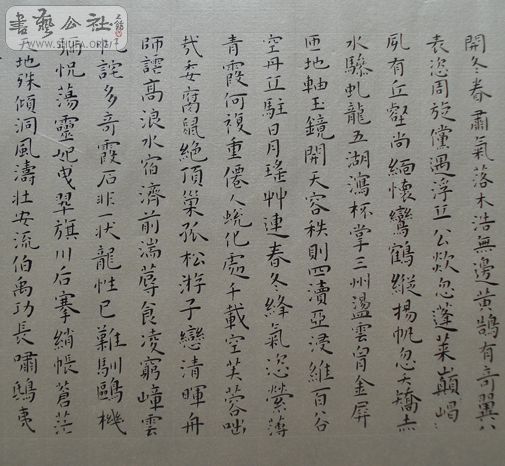 開冬眷肅氣落木浩無邊黃鵠有奇翼八
表恣周旋儻遇浮丘公欻忽蓬萊巔嵑
夙有丘壑尚緬懷鸞鶴縱揚帆忽夭矯赤
水驂虬龍五湖瀉杯掌三州盪雲胷金屏
匝地軸玉鏡開天容秩則四瀆亞浸維百谷
空丹丘駐日月瑤艸連春冬絳氣恣縈薄
青霞何複重僊人蛻化處千載空芙蓉咄
哉委腐鼠絕頂巢孤松游子戀清暉舟
師謹高浪水宿濟前湍蓐食凌窮嶂雲
詫多奇霞石非一狀龍性已難馴鷗機
彌怳蕩靈妃曳翠旗川后搴綃帳蒼茫
地殊傾洞風濤壯安流伯禹功長嘯鴟夷
書藝公社
www.SHUFA.ORG